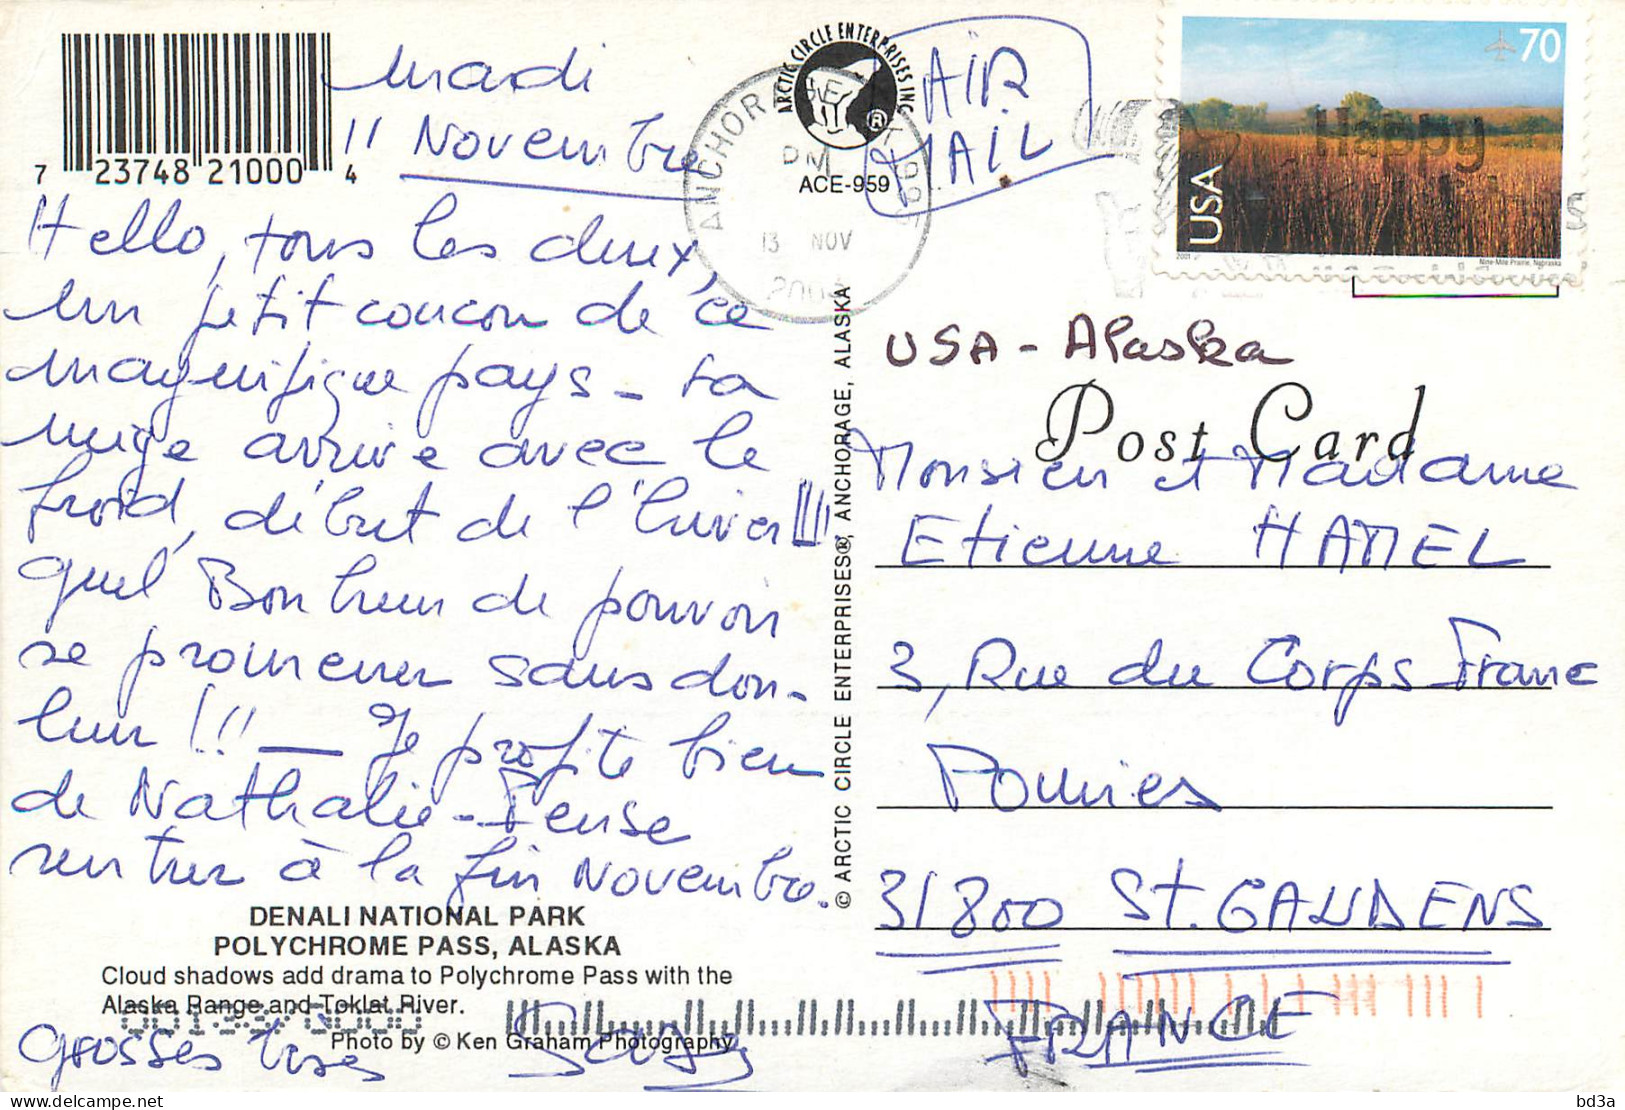 Mardi
11 Novembre
Hello, tous les deux,
un petit coucou de ce
magnifique pays - La
neige arrive avec le
froid, début de l'hiver !!!
quel Bonheur de pouvoir
se promener sans dou-
leur !!! — Je profite bien
de Nathalie - Pense
rentrer à la fin Novembre.
Grosses bises
7 23748 21000 4
DENALI NATIONAL PARK
POLYCHROME PASS, ALASKA
Cloud shadows add drama to Polychrome Pass with the
Alaska Range and Toklat River.
Photo by © Ken Graham Photography
© ARCTIC CIRCLE ENTERPRISES®, ANCHORAGE, ALASKA
ARCTIC CIRCLE ENTERPRISES INC
®
ACE-959
ANCHORAGE AK 995
PM
13 NOV
AIR
MAIL
70
USA
2001
Nine-Mile Prairie, Nebraska
Happy
USA - Alaska
Post Card
Monsieur et Madame
Etienne HAMEL
3, Rue du Corps Franc
Pomiès
31800 St. GAUDENS
FRANCE
bd3a